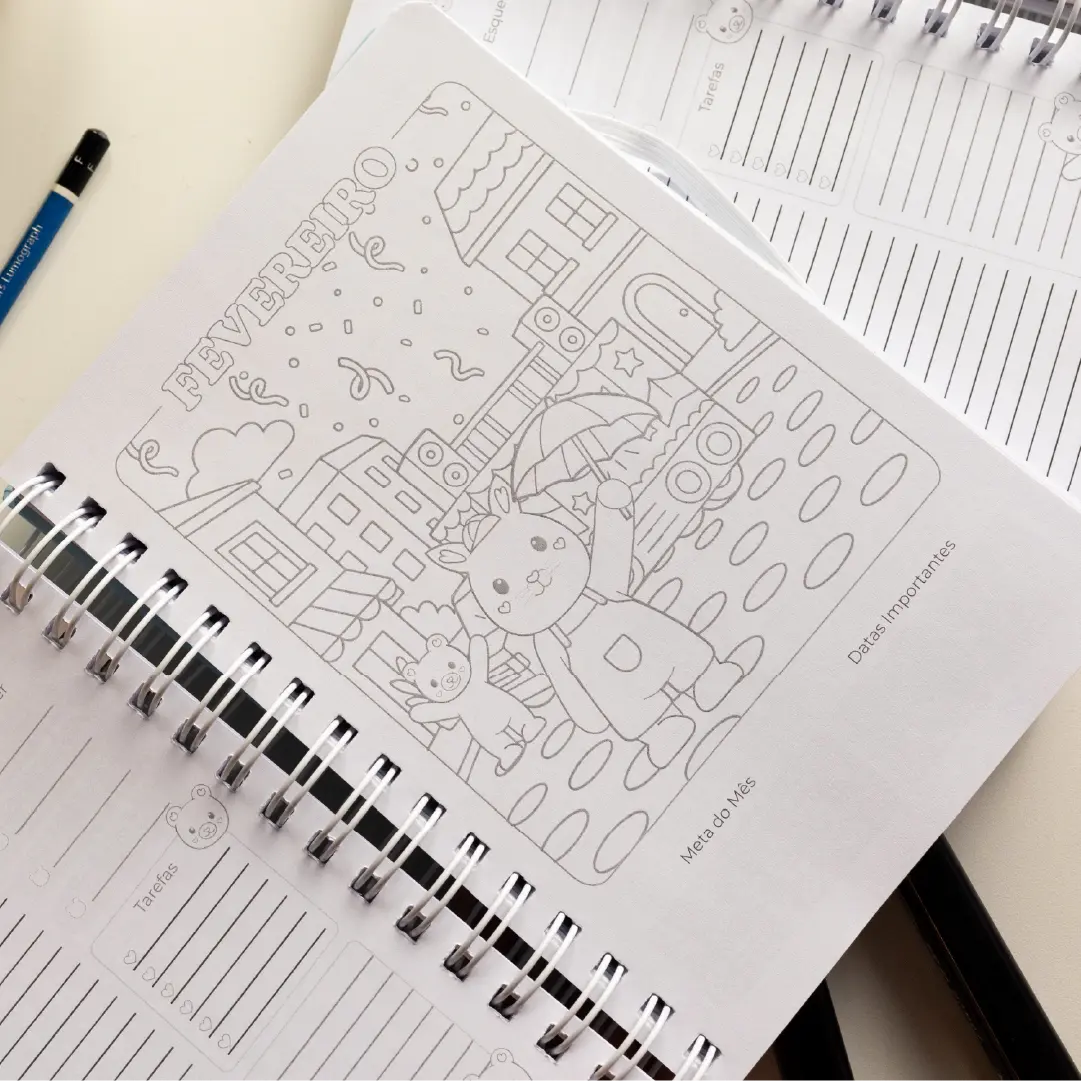 FEVEREIRO
Meta do Mês
Datas Importantes
Tarefas
Tarefas
Lumograph
F